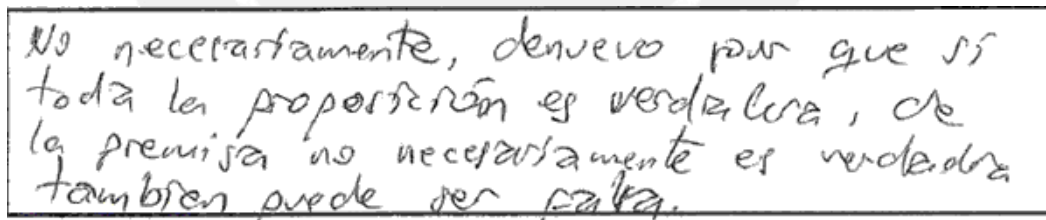 No necesariamente, denuevo por que si
toda la proposición es verdadera, de
la premisa no necesariamente es verdadra
tambien puede ser falsa.